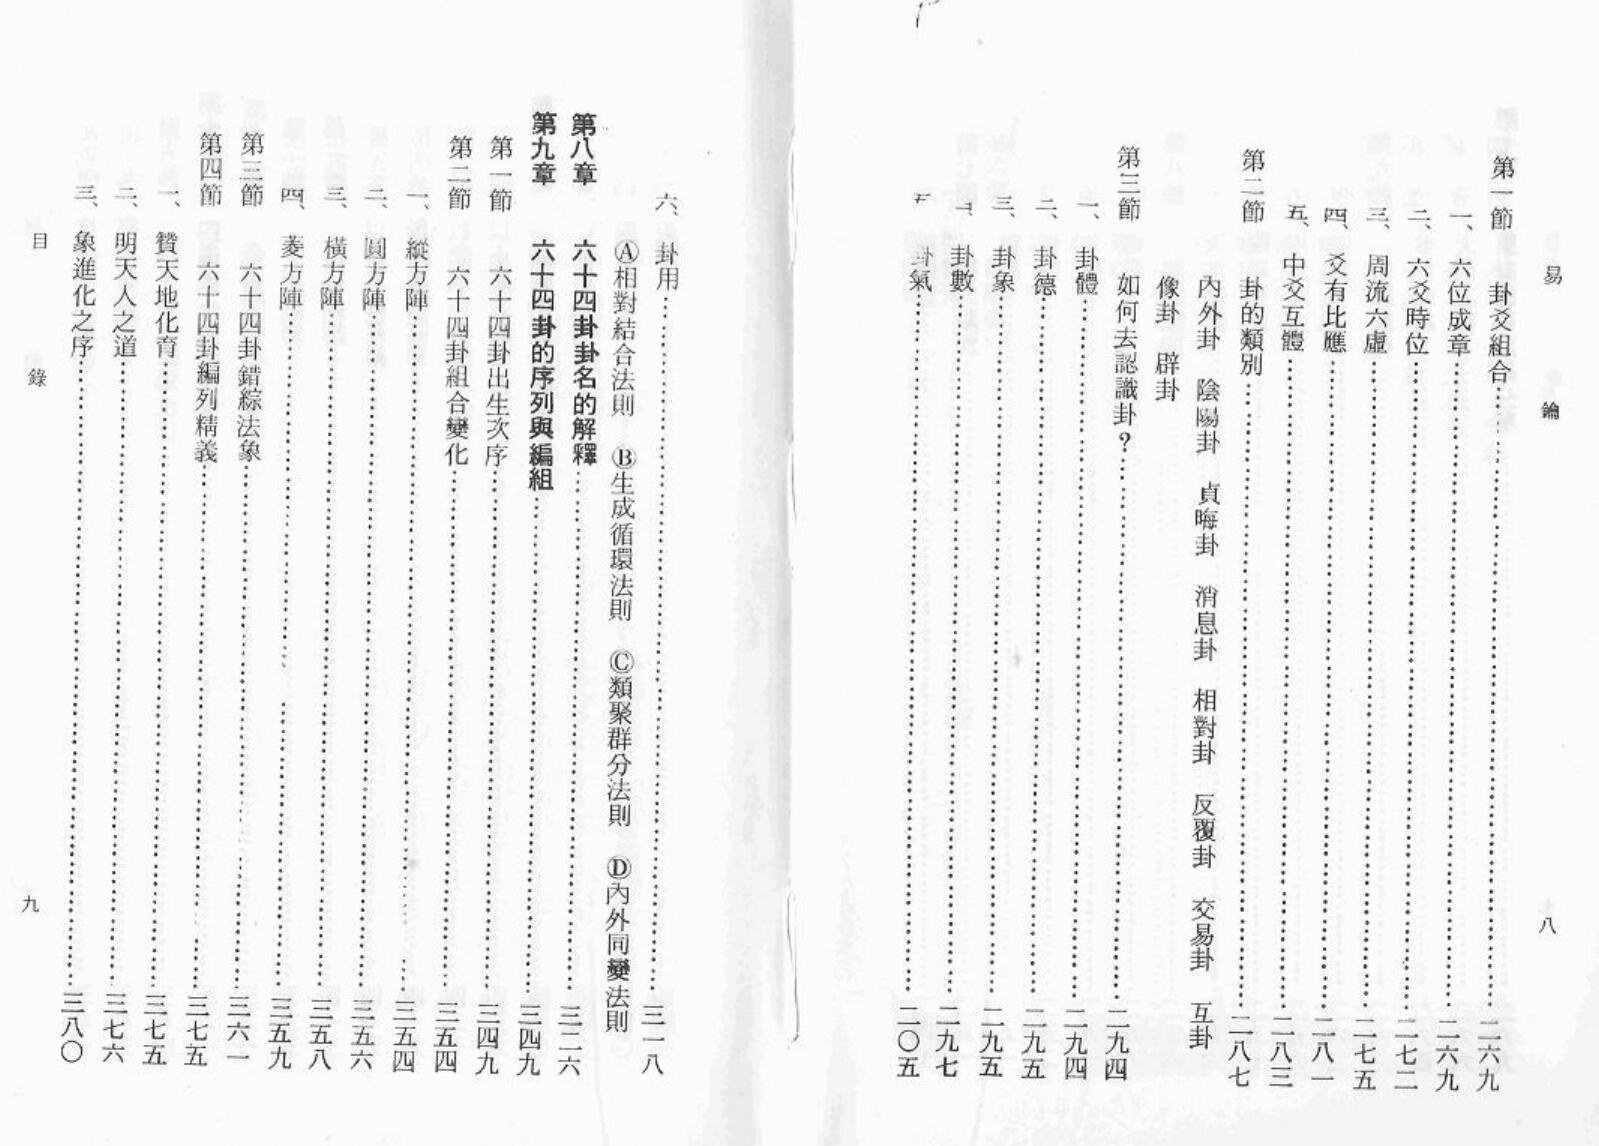 易鑰
八
第一節　卦爻組合……二六九
一、六位成章……二六九
二、六爻時位……二七二
三、周流六虛……二七五
四、爻有比應……二八一
五、中爻互體……二八三
第二節　卦的類別……二八七
內外卦　陰陽卦　貞晦卦　消息卦　相對卦　反覆卦　交易卦　互卦
像卦　辟卦
第三節　如何去認識卦？……二九四
一、卦體……二九四
二、卦德……二九五
三、卦象……二九五
卦數……二九七
卦氣……二〇五
六、卦用……三一八
Ⓐ相對結合法則　Ⓑ生成循環法則　Ⓒ類聚群分法則　Ⓓ內外同變法則
第八章　六十四卦卦名的解釋……三二六
第九章　六十四卦的序列與編組……三四九
第一節　六十四卦出生次序……三四九
第二節　六十四卦組合變化……三五四
一、縱方陣……三五四
二、圓方陣……三五六
三、橫方陣……三五八
四、菱方陣……三五九
第三節　六十四卦錯綜法象……三六一
第四節　六十四卦編列精義……三七五
一、贊天地化育……三七五
二、明天人之道……三七六
三、象進化之序……三八〇
目錄
九